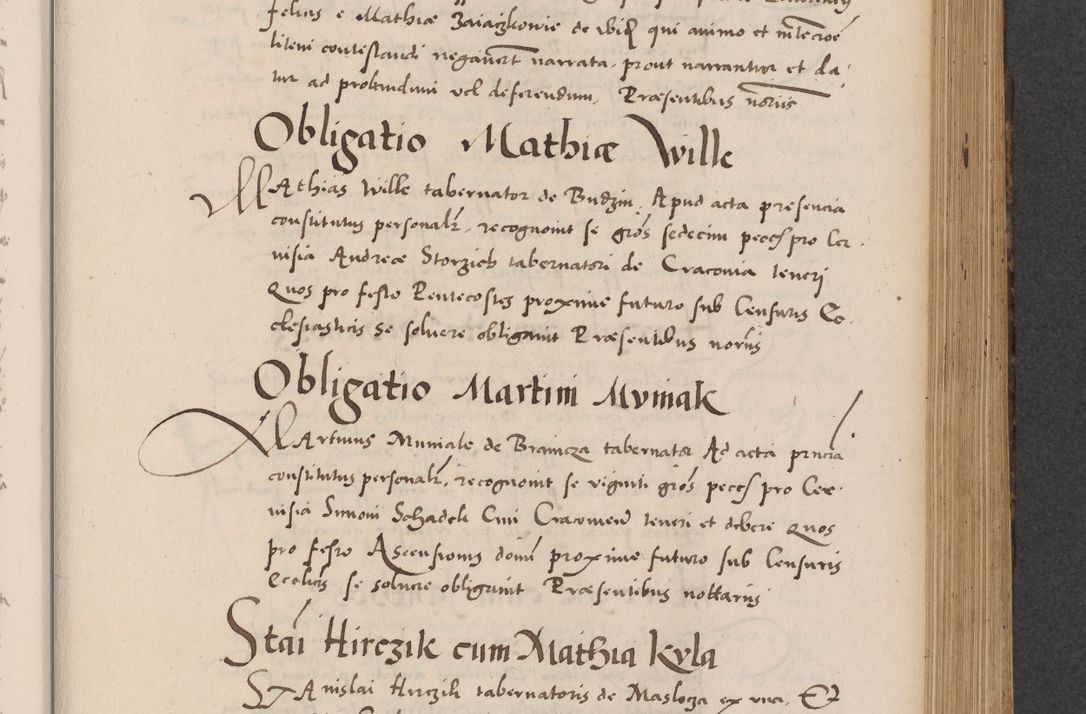 felicis e Mathiæ Zaiaczkowie de wiß qui animo et
liteni contestandi negaverunt narrata, prout narrantur et da
tur ad probandum vel deferendum, Præsentibus notoriis
Obligatio Mathiæ Wille
MAthias Wille tabernator de Budzin, Apud acta presencia
constitutus personalr, recognovit se gros sedecim pecces pro Cer
visia Andreæ Storzieb tabernatori de Cracovia teneri
Quos pro festo Pentecostes proxime futuro sub Censuris Ec
clesiasticis se solvere obligavit Præsentibus noriis
Obligatio Martini Mvniak
MArtinus Muniak de Branicza tabernator Ad acta prncia
constitutus personalr, recognovit se viginti gros pecces pro Cer
visia Simoni Schadek Civi Cracovien teneri et debere Quos
pro festo Ascensionis domi proxime futuro sub Censuris
Ecclicis se solvere obligavit Præsentibus nottariis
Stai Hirczik cum Mathia kyla
STAnislai Hirczik tabernatoris de Maslocza ex una, Et